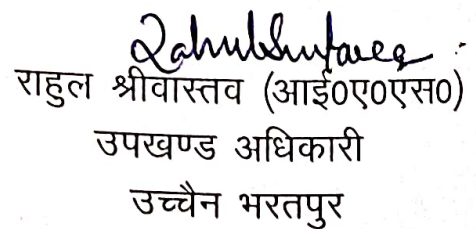 Rahul Shrivastava
राहुल श्रीवास्तव (आई०ए०एस०)
उपखण्ड अधिकारी
उच्चैन भरतपुर